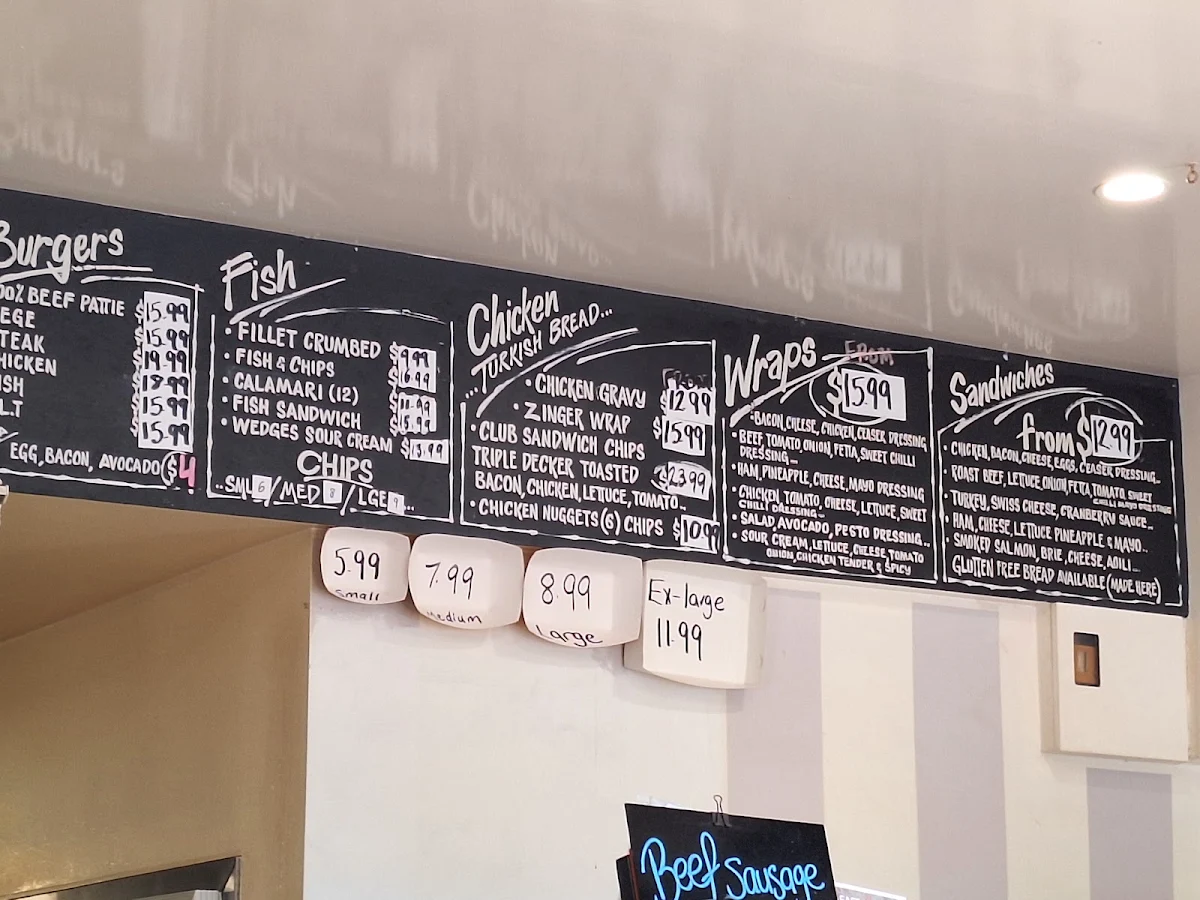 Burgers
BEEF PATTIE $15.99
EGE 15.99
TEAK 19.99
HICKEN 18.99
ISH 15.99
L.T 15.99
EGG, BACON, AVOCADO $4
Fish
• FILLET CRUMBED $9.99
• FISH & CHIPS
• CALAMARI (12)
• FISH SANDWICH
• WEDGES SOUR CREAM
CHIPS
..SML 6 /MED 8 /LGE 9...
Chicken
..TURKISH BREAD...
FROM
• CHICKEN GRAVY 12.99
• ZINGER WRAP $15.99
• CLUB SANDWICH CHIPS
TRIPLE DECKER TOASTED $23.99
BACON, CHICKEN, LETUCE, TOMATO..
• CHICKEN NUGGETS (6) CHIPS $10.9
Wraps FROM
$15.99
• BACON, CHEESE, CHICKEN, CEASER DRESSING
• BEEF, TOMATO ONION, FETTA, SWEET CHILLI
DRESSING...
• HAM, PINEAPPLE, CHEESE, MAYO DRESSING
• CHICKEN, TOMATO, CHEESE, LETTUCE, SWEET
CHILLI DRESSING...
• SALAD, AVOCADO, PESTO DRESSING..
• SOUR CREAM, LETTUCE, CHEESE, TOMATO
ONION, CHICKEN TENDER & SPICY
Sandwiches
from $12.99
• CHICKEN, BACON, CHEESE, EGGS, CEASER DRESSING..
• ROAST BEEF, LETUCE, ONION, FETA, TOMATO, SWEET
CHILLI MAYO DRESSING
• TURKEY, SWISS CHEESE, CRANBERRY SAUCE...
• HAM, CHEESE, LETTUCE PINEAPPLE & MAYO..
• SMOKED SALMON, BRIE, CHEESE, AOILI...
GLUTTEN FREE BREAD AVAILABLE (MADE HERE)
5.99
small
7.99
medium
8.99
Large
Ex-large
11.99
Beef Sausage